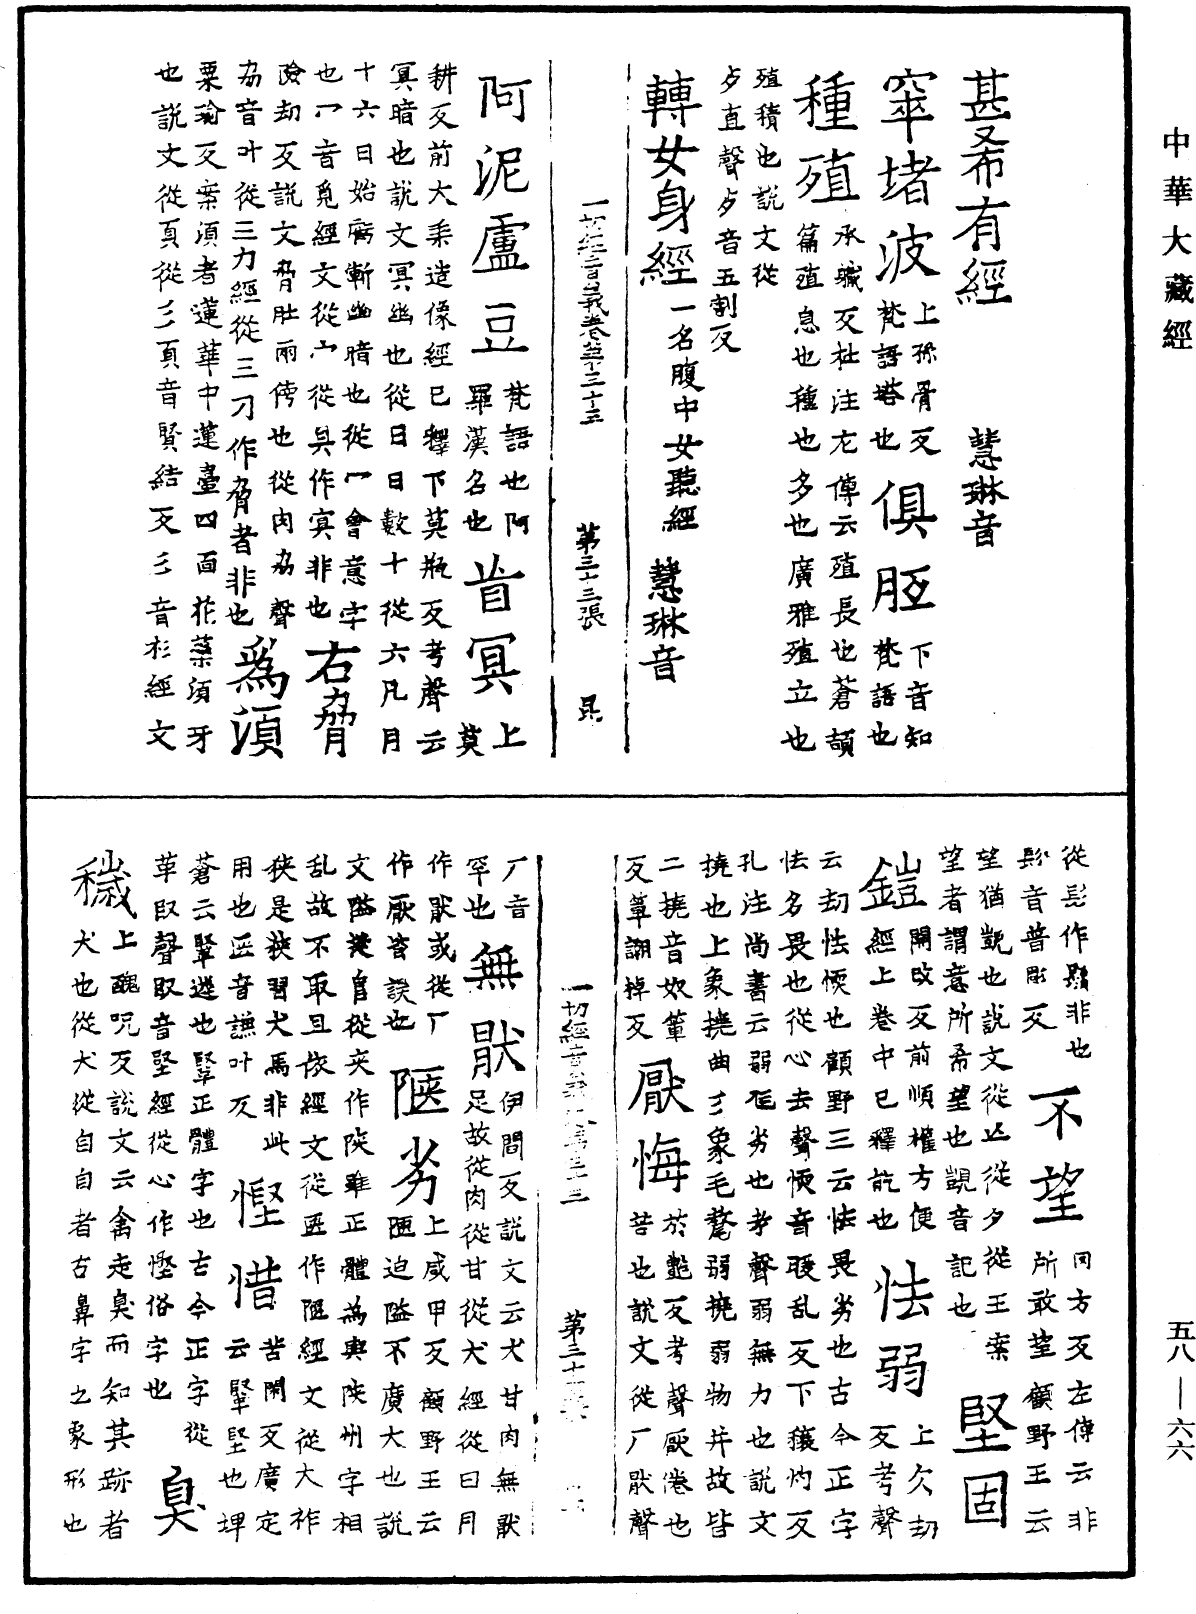 中華大藏經
甚希有經 慧琳音
窣堵波上孫骨反梵語塔也俱胝下音知梵語也
種殖承軄反杜注左傳云殖長也蒼頡篇殖息也種也多也廣雅殖立也
殖積也說文從
歺直聲歺音五割反
轉女身經一名腹中女聽經 慧琳音
一切經音義卷第三十三 第三十三張
阿泥盧豆梵語也阿羅漢名也昏冥上莫
耕反前大乘造像經已釋下莫瓶反考聲云
冥暗也說文冥幽也從日日數十從六凡月
十六日始虧漸幽暗也從冖會意字
也冖音覓經文從宀從具作寘非也右脅
險劫反說文脅肚兩傍也從肉劦聲
劦音叶從三力經從三刀作脅者非也為須
粟瑜反案須者蓮華中蓮臺四面花蘂須牙
也說文從頁從彡頁音賢結反彡音杉經文
從髟作鬚非也
髟音普彫反不望同方反左傳云非所敢望顧野王云
望猶覬也說文從亡從夕從王案
望者謂意所希望也覬音記也堅固
鎧開改反前順權方便經上卷中已釋訖也怯弱上欠劫反考聲
云劫怯愞也顧野王云怯畏劣也古今正字
怯名畏也從心去聲愞音暖乱反下穰灼反
孔注尚書云弱尫劣也考聲弱無力也說文
撓也上象撓曲彡象毛氂弱撓弱物并故皆
二撓音奴箄反箄誵掉反厭悔於豔反考聲厭倦也苦也說文從厂猒聲
一切經音義卷第三十三
厂音罕也無猒伊閻反說文云犬甘肉無猒足故從肉從甘從犬經從日月
作猒或從厂作厭皆誤也陿劣上咸甲反顧野王云陿迫隘不廣大也說
文隘從𨸏從夾作陝雖正體為與陝州字相
乱故不取且依經文從匧作陿經文從犬作
狹是狹習犬馬非此用也匧音謙叶反慳惜苦閑反廣定云堅也埤
蒼云掔遴也掔正體字也古今正字從
革㕡聲㕡音堅經從心作慳俗字也臭
穢上醜呪反說文云禽走臭而知其跡者犬也從犬從自自者古鼻字之象形也
五八—六六